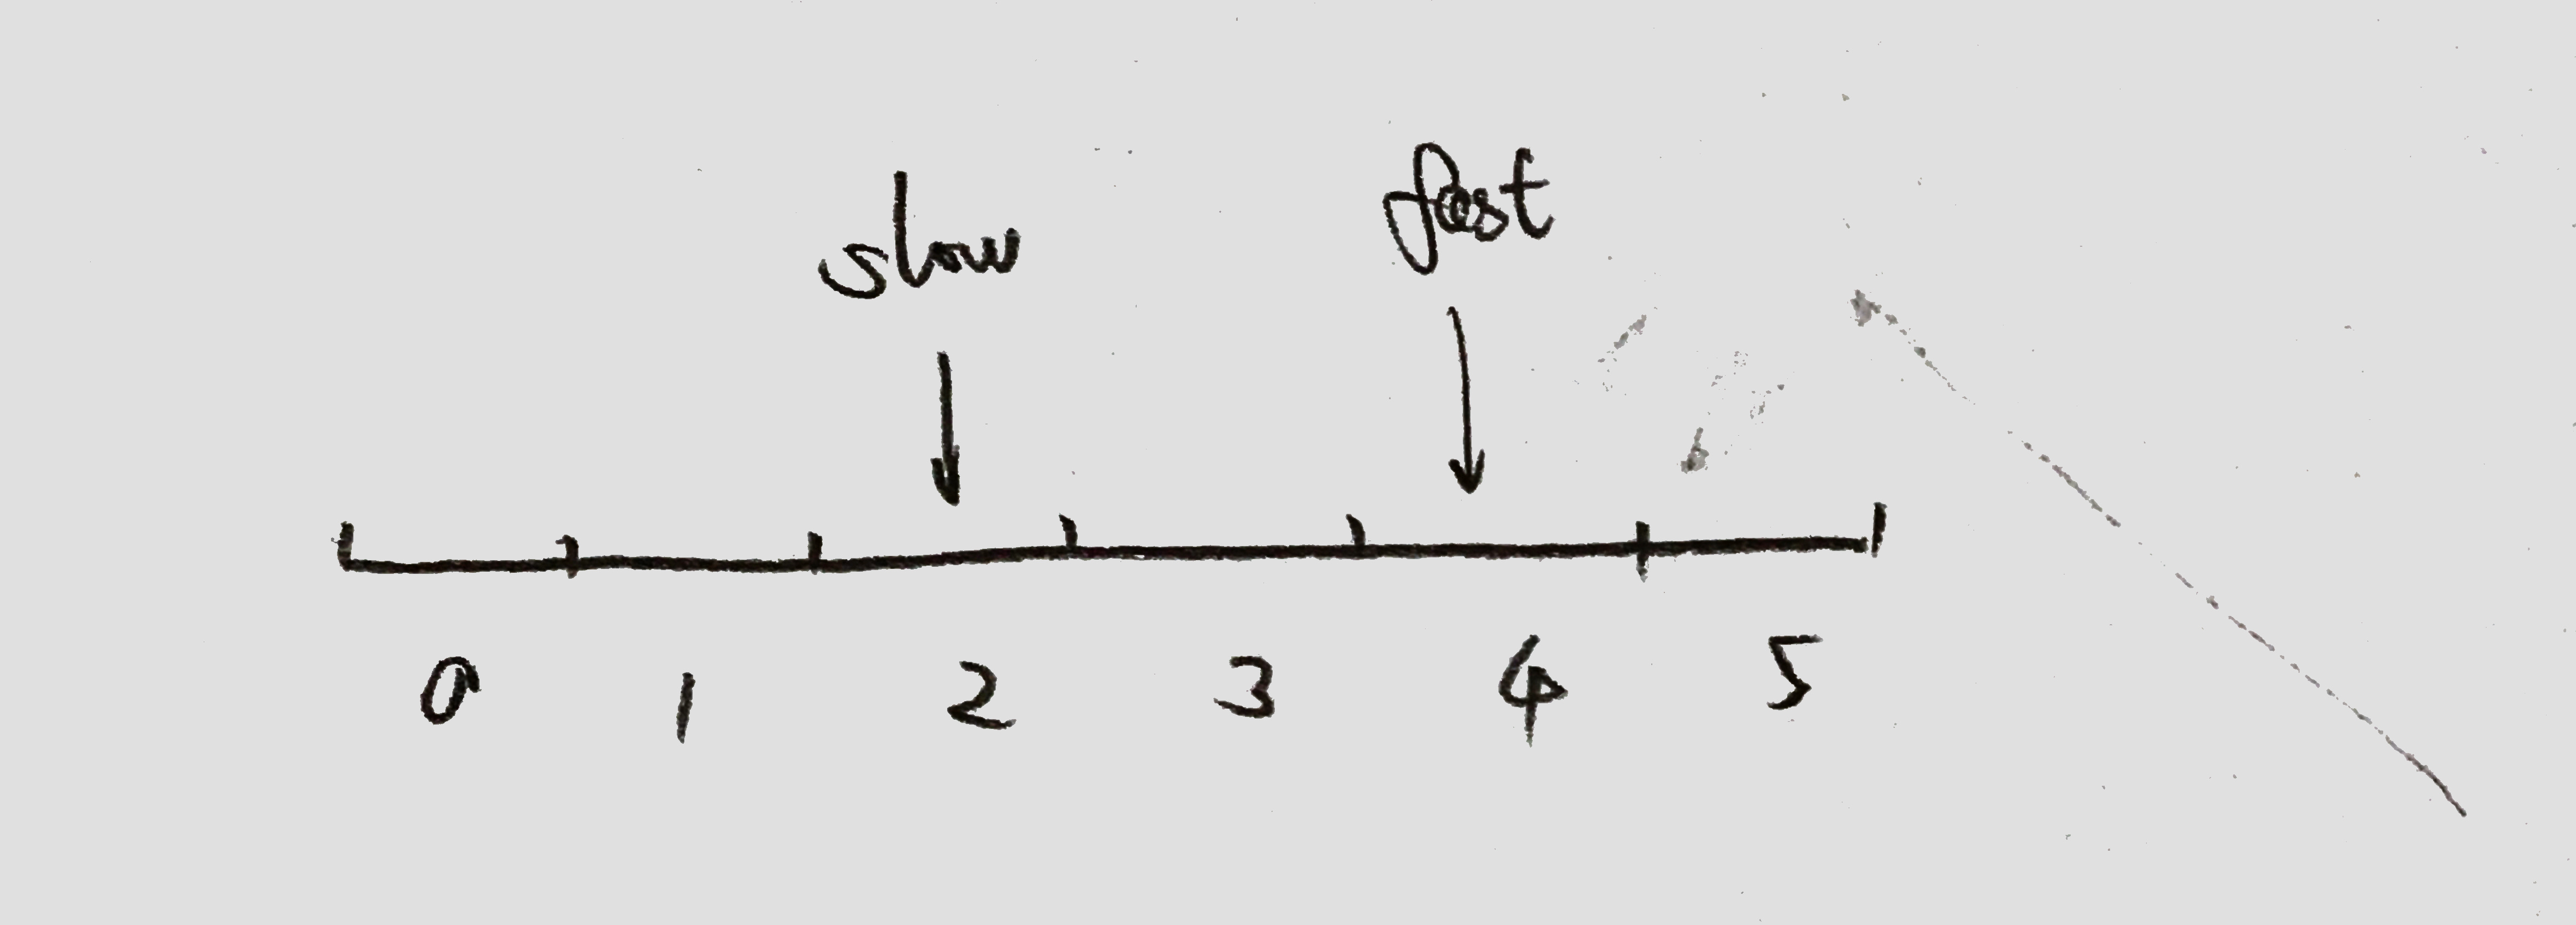 slow fast
0 1 2 3 4 5